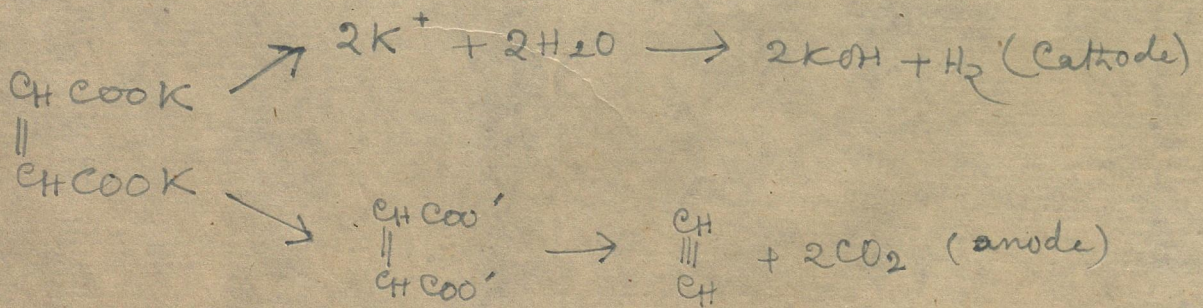 2K⁺ + 2H2O ⟶ 2KOH + H2 (Cathode)
CHCOOK
||
CHCOOK
CHCOO′
||
CHCOO′
⟶
CH
|||
CH
+ 2CO2 (anode)